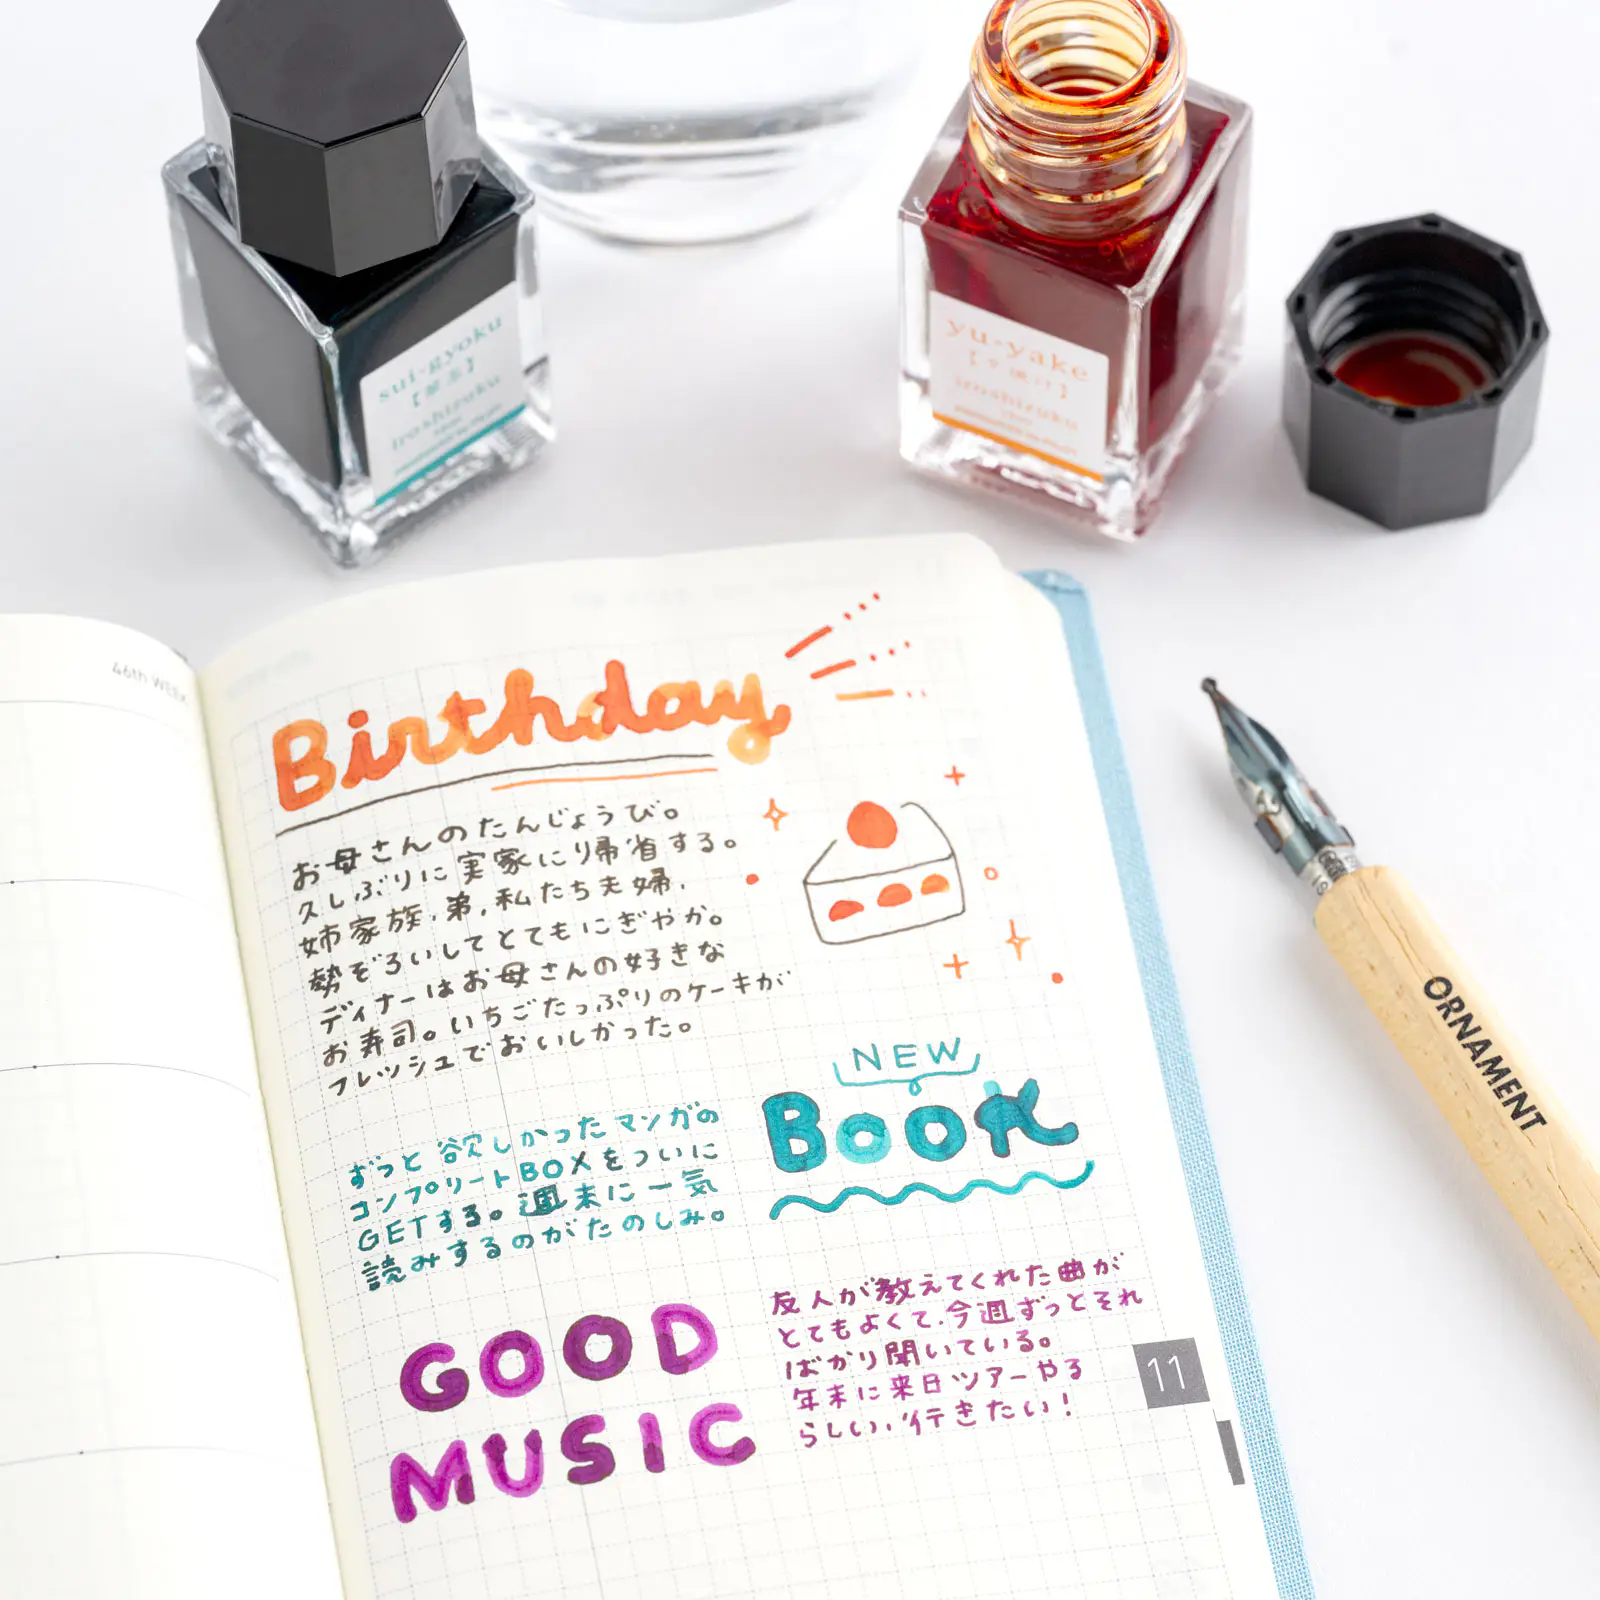 sui-gyoku
【翠玉】
iroshizuku
yu-yake
【夕焼け】
iroshizuku
46th WEEK
Birthday
お母さんのたんじょうび。
久しぶりに実家に帰省する。
姉家族、弟、私たち夫婦、
勢ぞろいしてとてもにぎやか。
ディナーはお母さんの好きな
お寿司。いちごたっぷりのケーキが
フレッシュでおいしかった。
NEW
Book
ずっと欲しかったマンガの
コンプリートBOXをついに
GETする。週末に一気
読みするのがたのしみ。
GOOD
MUSIC
友人が教えてくれた曲が
とてもよくて、今週ずっとそれ
ばかり聞いている。
年末に来日ツアーやる
らしい、行きたい！
11
ORNAMENT